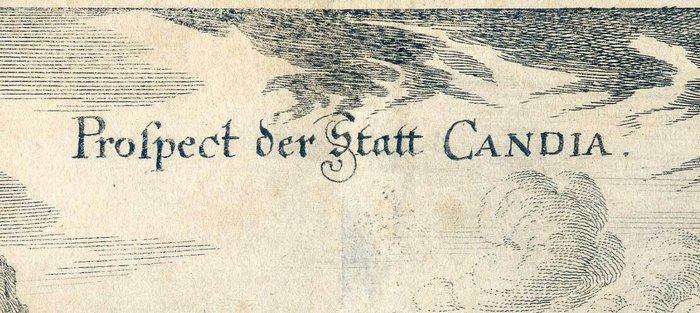 Proſpect der Statt CANDIA.